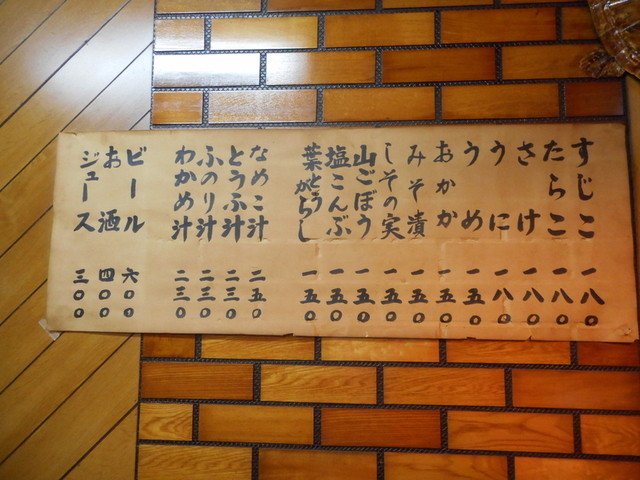 すじこ 一八〇
たらこ 一八〇
さけ 一八〇
うに 一八〇
うめ 一五〇
おかか 一五〇
みそ漬 一五〇
しその実 一五〇
山ごぼう 一五〇
塩こんぶ 一五〇
葉とうがらし 一五〇
なめこ汁 二五〇
とうふ汁 二三〇
ふのり汁 二三〇
わかめ汁 二三〇
ビール 六〇〇
お酒 四〇〇
ジュース 三〇〇